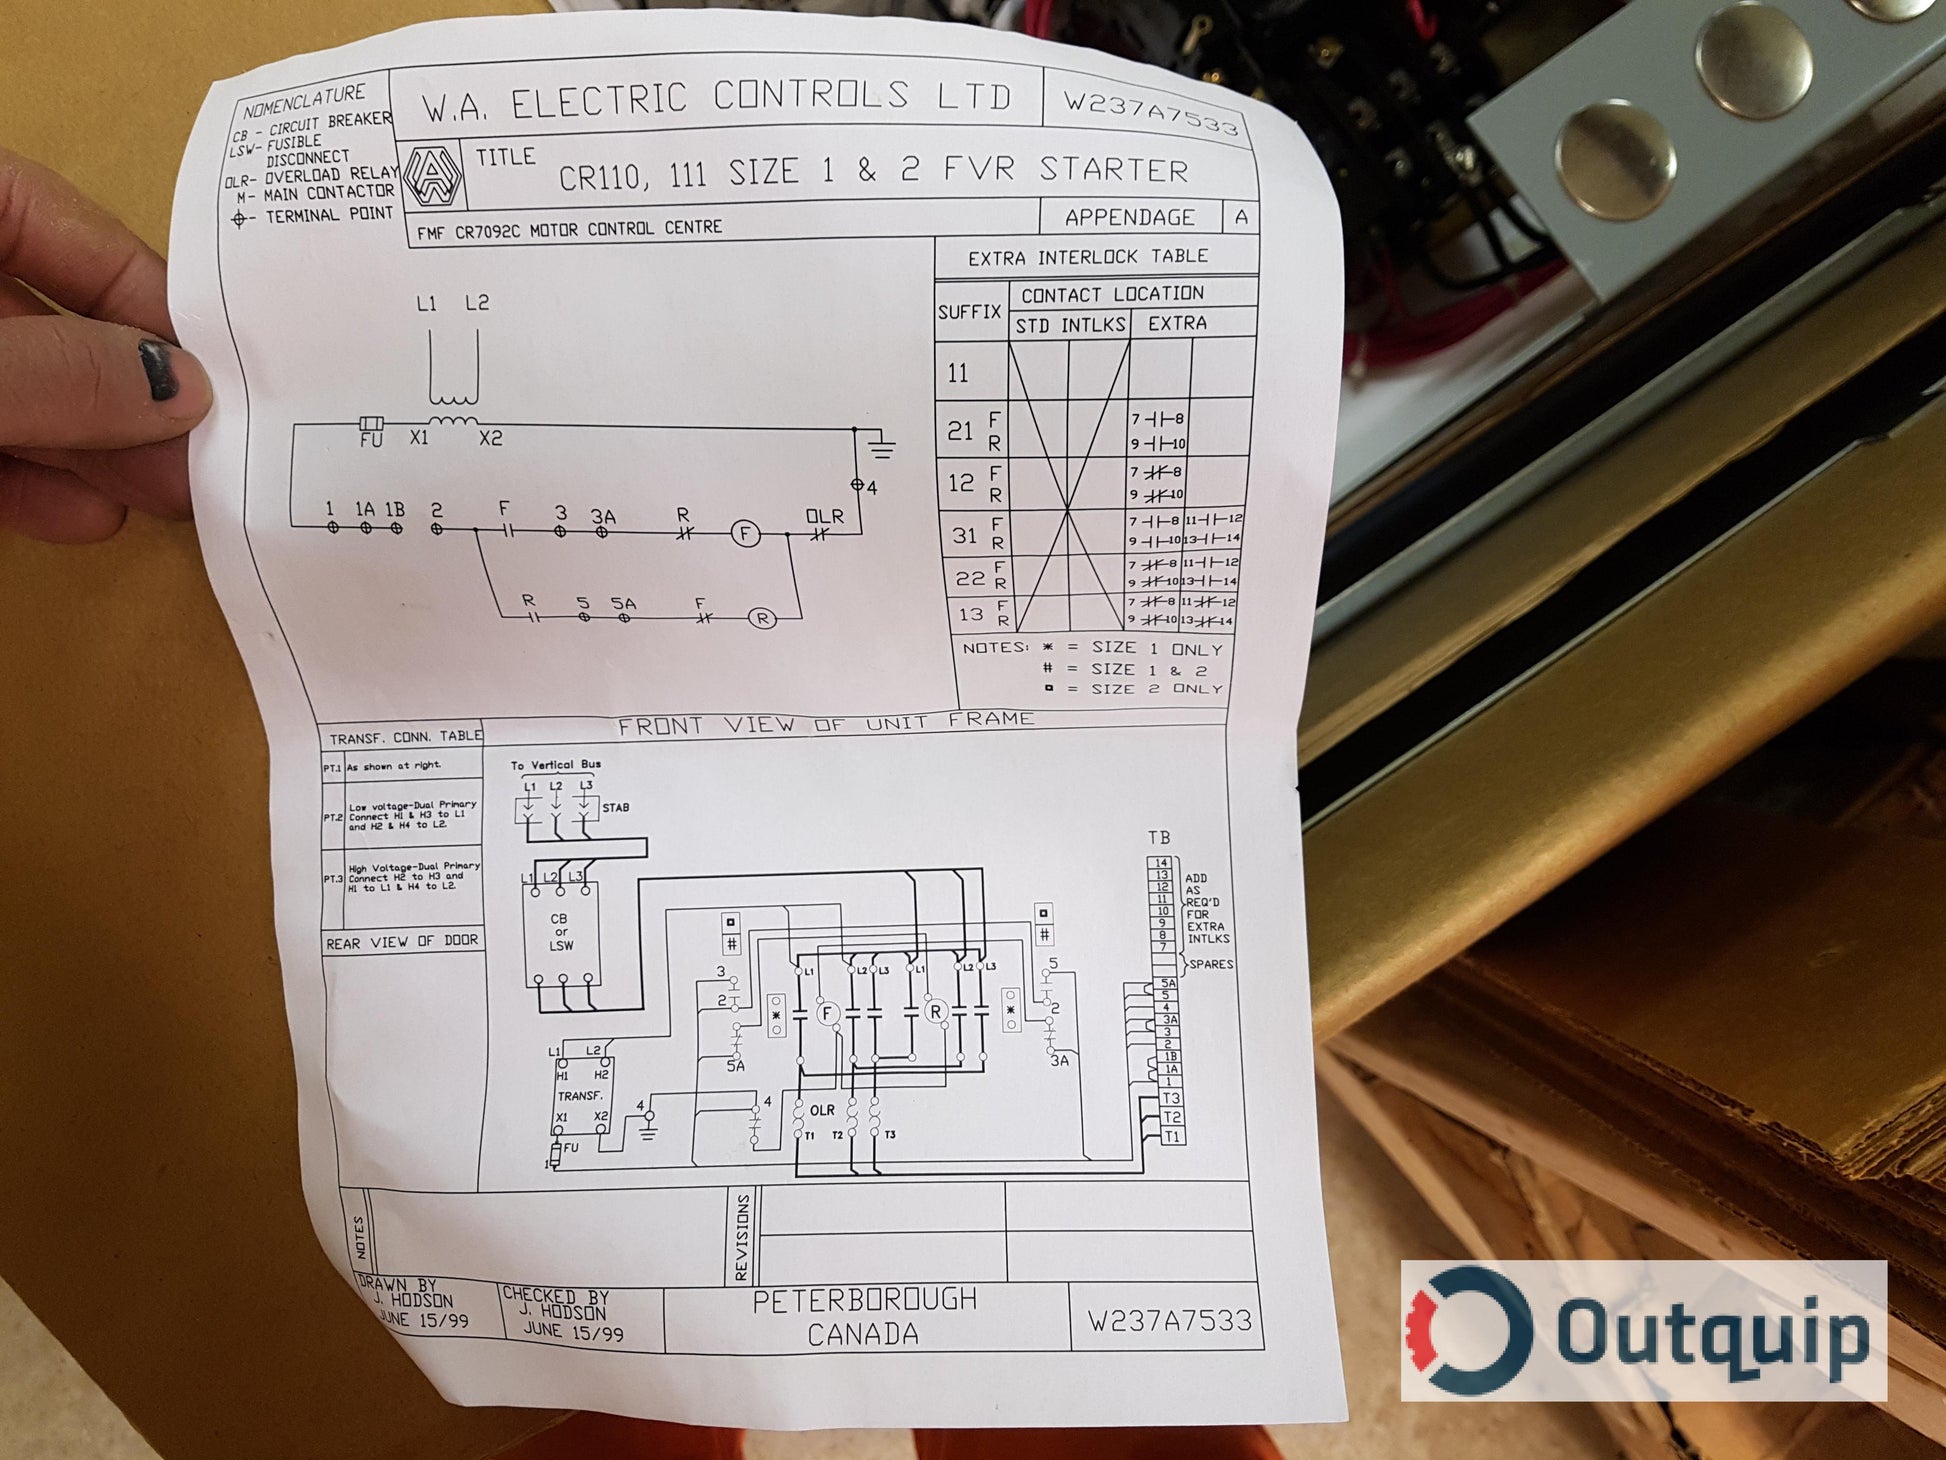 NOMENCLATURE
CB - CIRCUIT BREAKER
LSW- FUSIBLE
DISCONNECT
OLR- OVERLOAD RELAY
M- MAIN CONTACTOR
- TERMINAL POINT
W.A. ELECTRIC CONTROLS LTD
W237A7533
TITLE
CR110, 111 SIZE 1 & 2 FVR STARTER
FMF CR7092C MOTOR CONTROL CENTRE
APPENDAGE A
EXTRA INTERLOCK TABLE
SUFFIX
CONTACT LOCATION
STD INTLKS
EXTRA
11
21 F
R
7 8
9 10
12 F
R
7 8
9 10
31 F
R
7 8 11 12
9 10 13 14
22 F
R
7 8 11 12
9 10 13 14
13 F
R
7 8 11 12
9 10 13 14
NOTES: * = SIZE 1 ONLY
# = SIZE 1 & 2
▫ = SIZE 2 ONLY
L1 L2
FU X1 X2
4
1 1A 1B 2 F 3 3A R F OLR
R 5 5A F R
TRANSF. CONN. TABLE
PT.1 As shown at right.
PT.2 Low voltage-Dual Primary
Connect H1 & H3 to L1
and H2 & H4 to L2.
PT.3 High Voltage-Dual Primary
Connect H2 to H3 and
H1 to L1 & H4 to L2.
REAR VIEW OF DOOR
FRONT VIEW OF UNIT FRAME
To Vertical Bus
L1 L2 L3
STAB
L1 L2 L3
CB
or
LSW
L1 L2
H1 H2
TRANSF.
X1 X2
FU
1
4
3
2
5A
#
*
L1 L2 L3 L1 L2 L3
F
R
#
*
5
2
3A
4
OLR
T1 T2 T3
TB
14
13
12
11
10
9
8
7
ADD
AS
REQ'D
FOR
EXTRA
INTLKS
SPARES
5A
5
4
3A
3
2
1B
1A
1
T3
T2
T1
NOTES
REVISIONS
DRAWN BY
J. HODSON
JUNE 15/99
CHECKED BY
J. HODSON
JUNE 15/99
PETERBOROUGH
CANADA
W237A7533
Outquip